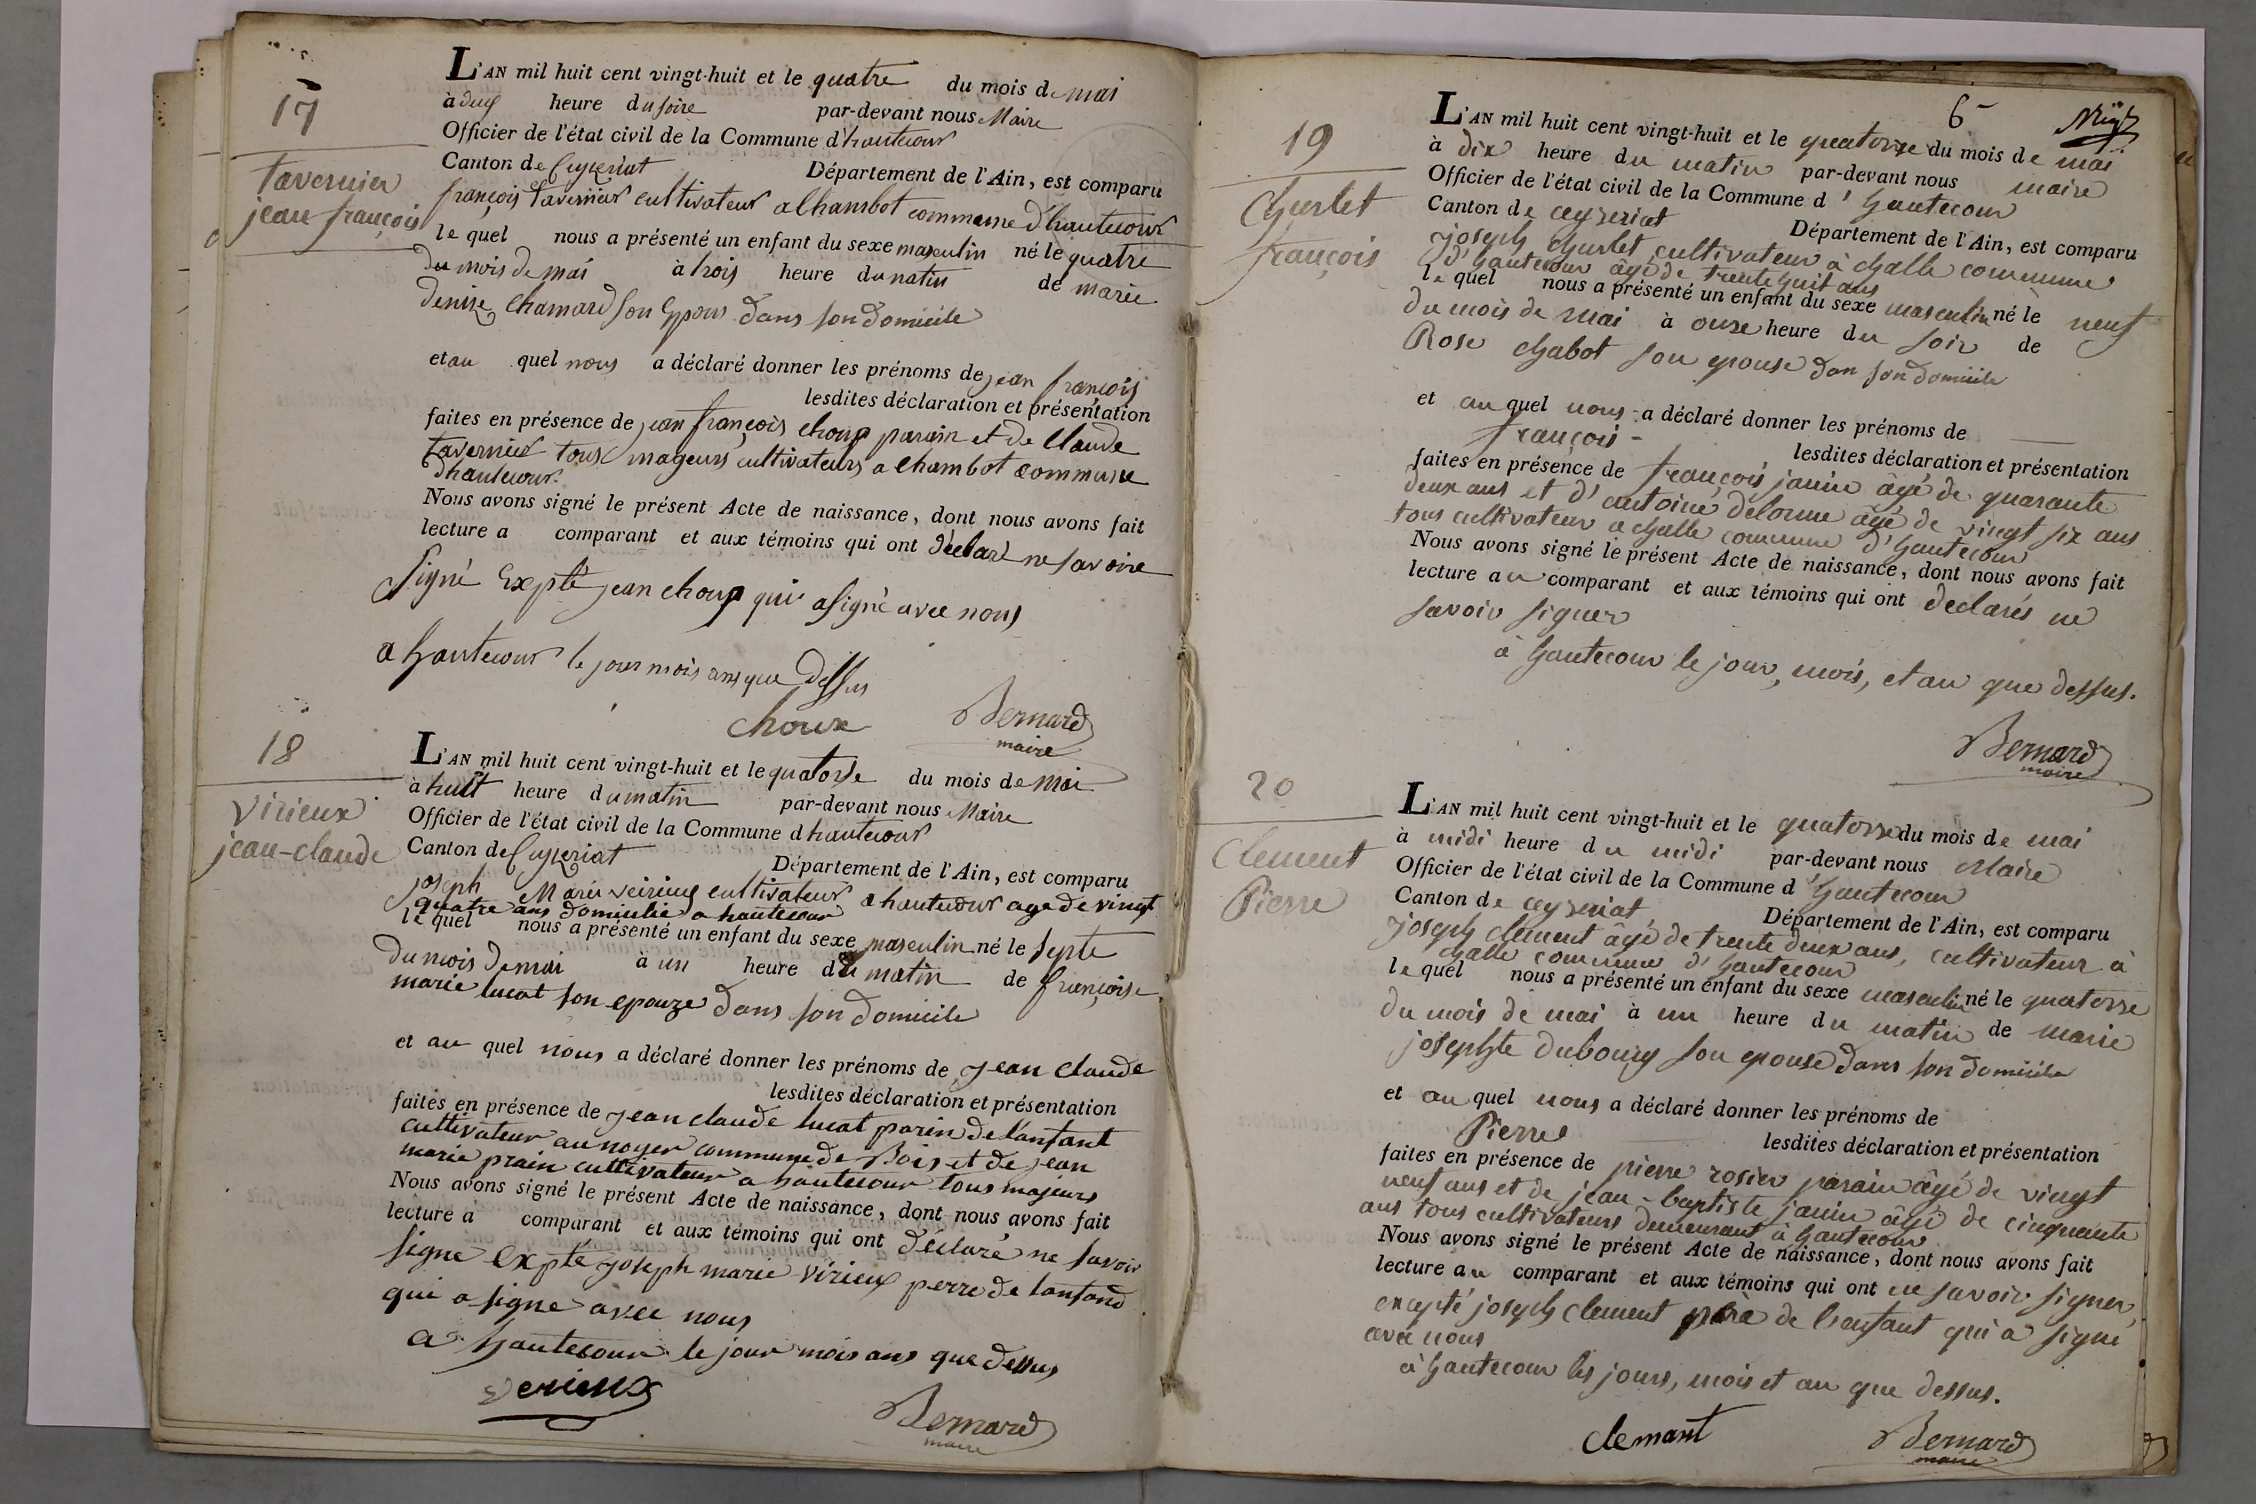 17
Tavernier
jean françois
L'AN mil huit cent vingt-huit et le quatre du mois de mai
à duy heure du soire par-devant nous Maire
Officier de l'état civil de la Commune d'hautecour
Canton de Ceyzeriat Département de l'Ain, est comparu
françois tavernier cultivateur a Chambot commune d'hautecour
le quel nous a présenté un enfant du sexe masculin né le quatre
du mois de mai à trois heure du matin de marie
denise Chamard son epous dans son domicile
et au quel nous a déclaré donner les prénoms de jean françois
lesdites déclaration et présentation
faites en présence de jean françois choux parain et de Claude
tavernier tous mageurs cultivateurs a Chambot commune
d'hautecour.
Nous avons signé le présent Acte de naissance, dont nous avons fait
lecture a comparant et aux témoins qui ont déclaré ne savoire
signé Expté jean choux qui a signé avec nous
a hautecour le jour mois ans que dessus
choux Bernard
maire
18
Virieux
jean-claude
L'AN mil huit cent vingt-huit et le quatorse du mois de mai
à huit heure du matin par-devant nous Maire
Officier de l'état civil de la Commune d hautecour
Canton de Ceyzeriat Département de l'Ain, est comparu
joseph Marie veirieux cultivateur a hautecour age de vingt
quatre ans domicilié a hautecour
le quel nous a présenté un enfant du sexe masculin né le septe
du mois de mai à un heure du matin de françoise
marie lucat son epouze dans son domicile
et au quel nous a déclaré donner les prénoms de jean claude
lesdites déclaration et présentation
faites en présence de jean claude lucat parin de l'anfant
cultivateur au noyer commune de Bois et de jean
marie prain cultivateur a hautecour tous majeurs
Nous avons signé le présent Acte de naissance, dont nous avons fait
lecture a comparant et aux témoins qui ont déclaré ne savoir
signe Expté joseph marie virieux perre de lanfand
qui a signe avec nous
a hautecour le jour mois ans que dessus
verieux Bernard
maire
6
19
Churlet
françois
L'AN mil huit cent vingt-huit et le quatorze du mois de mai
à dix heure du matin par-devant nous maire
Officier de l'état civil de la Commune d'hautecour
Canton de ceyzeriat Département de l'Ain, est comparu
joseph churlet cultivateur à challe commune
d'hautecour âgé de trente huit ans
le quel nous a présenté un enfant du sexe masculin né le neuf
du mois de mai à onze heure du soir de
Rose chabot son epouse dan son domicile
et au quel nous a déclaré donner les prénoms de
françois - lesdites déclaration et présentation
faites en présence de françois janin âgé de quarante
deux ans et d'antoine delorme âgé de vingt six ans
tous cultivateur a challe commune d'hautecour
Nous avons signé le présent Acte de naissance, dont nous avons fait
lecture au comparant et aux témoins qui ont declarés ne
savoir signer
à hautecour le jour, mois, et an que dessus.
Bernard
maire
20
Clement
Pierre
L'AN mil huit cent vingt-huit et le quatorze du mois de mai
à midi heure du midi par-devant nous Maire
Officier de l'état civil de la Commune d'hautecour
Canton de ceyzeriat Département de l'Ain, est comparu
joseph clement âgé de trente deux ans, cultivateur à
challe commune d'hautecour
le quel nous a présenté un enfant du sexe masculin né le quatorze
du mois de mai à un heure du matin de marie
josephte dubourg son epouse dans son domicile
et au quel nous a déclaré donner les prénoms de
Pierre lesdites déclaration et présentation
faites en présence de pierre rosier parain âgé de vingt
neuf ans et de jean-baptiste janin âgé de cinquante
ans tous cultivateurs demeurant à hautecour
Nous avons signé le présent Acte de naissance, dont nous avons fait
lecture au comparant et aux témoins qui ont ne savoir signer,
excepté joseph clement père de l'enfant qui a signé
avec nous
à hautecour les jours, mois et an que dessus.
clemant Bernard
maire